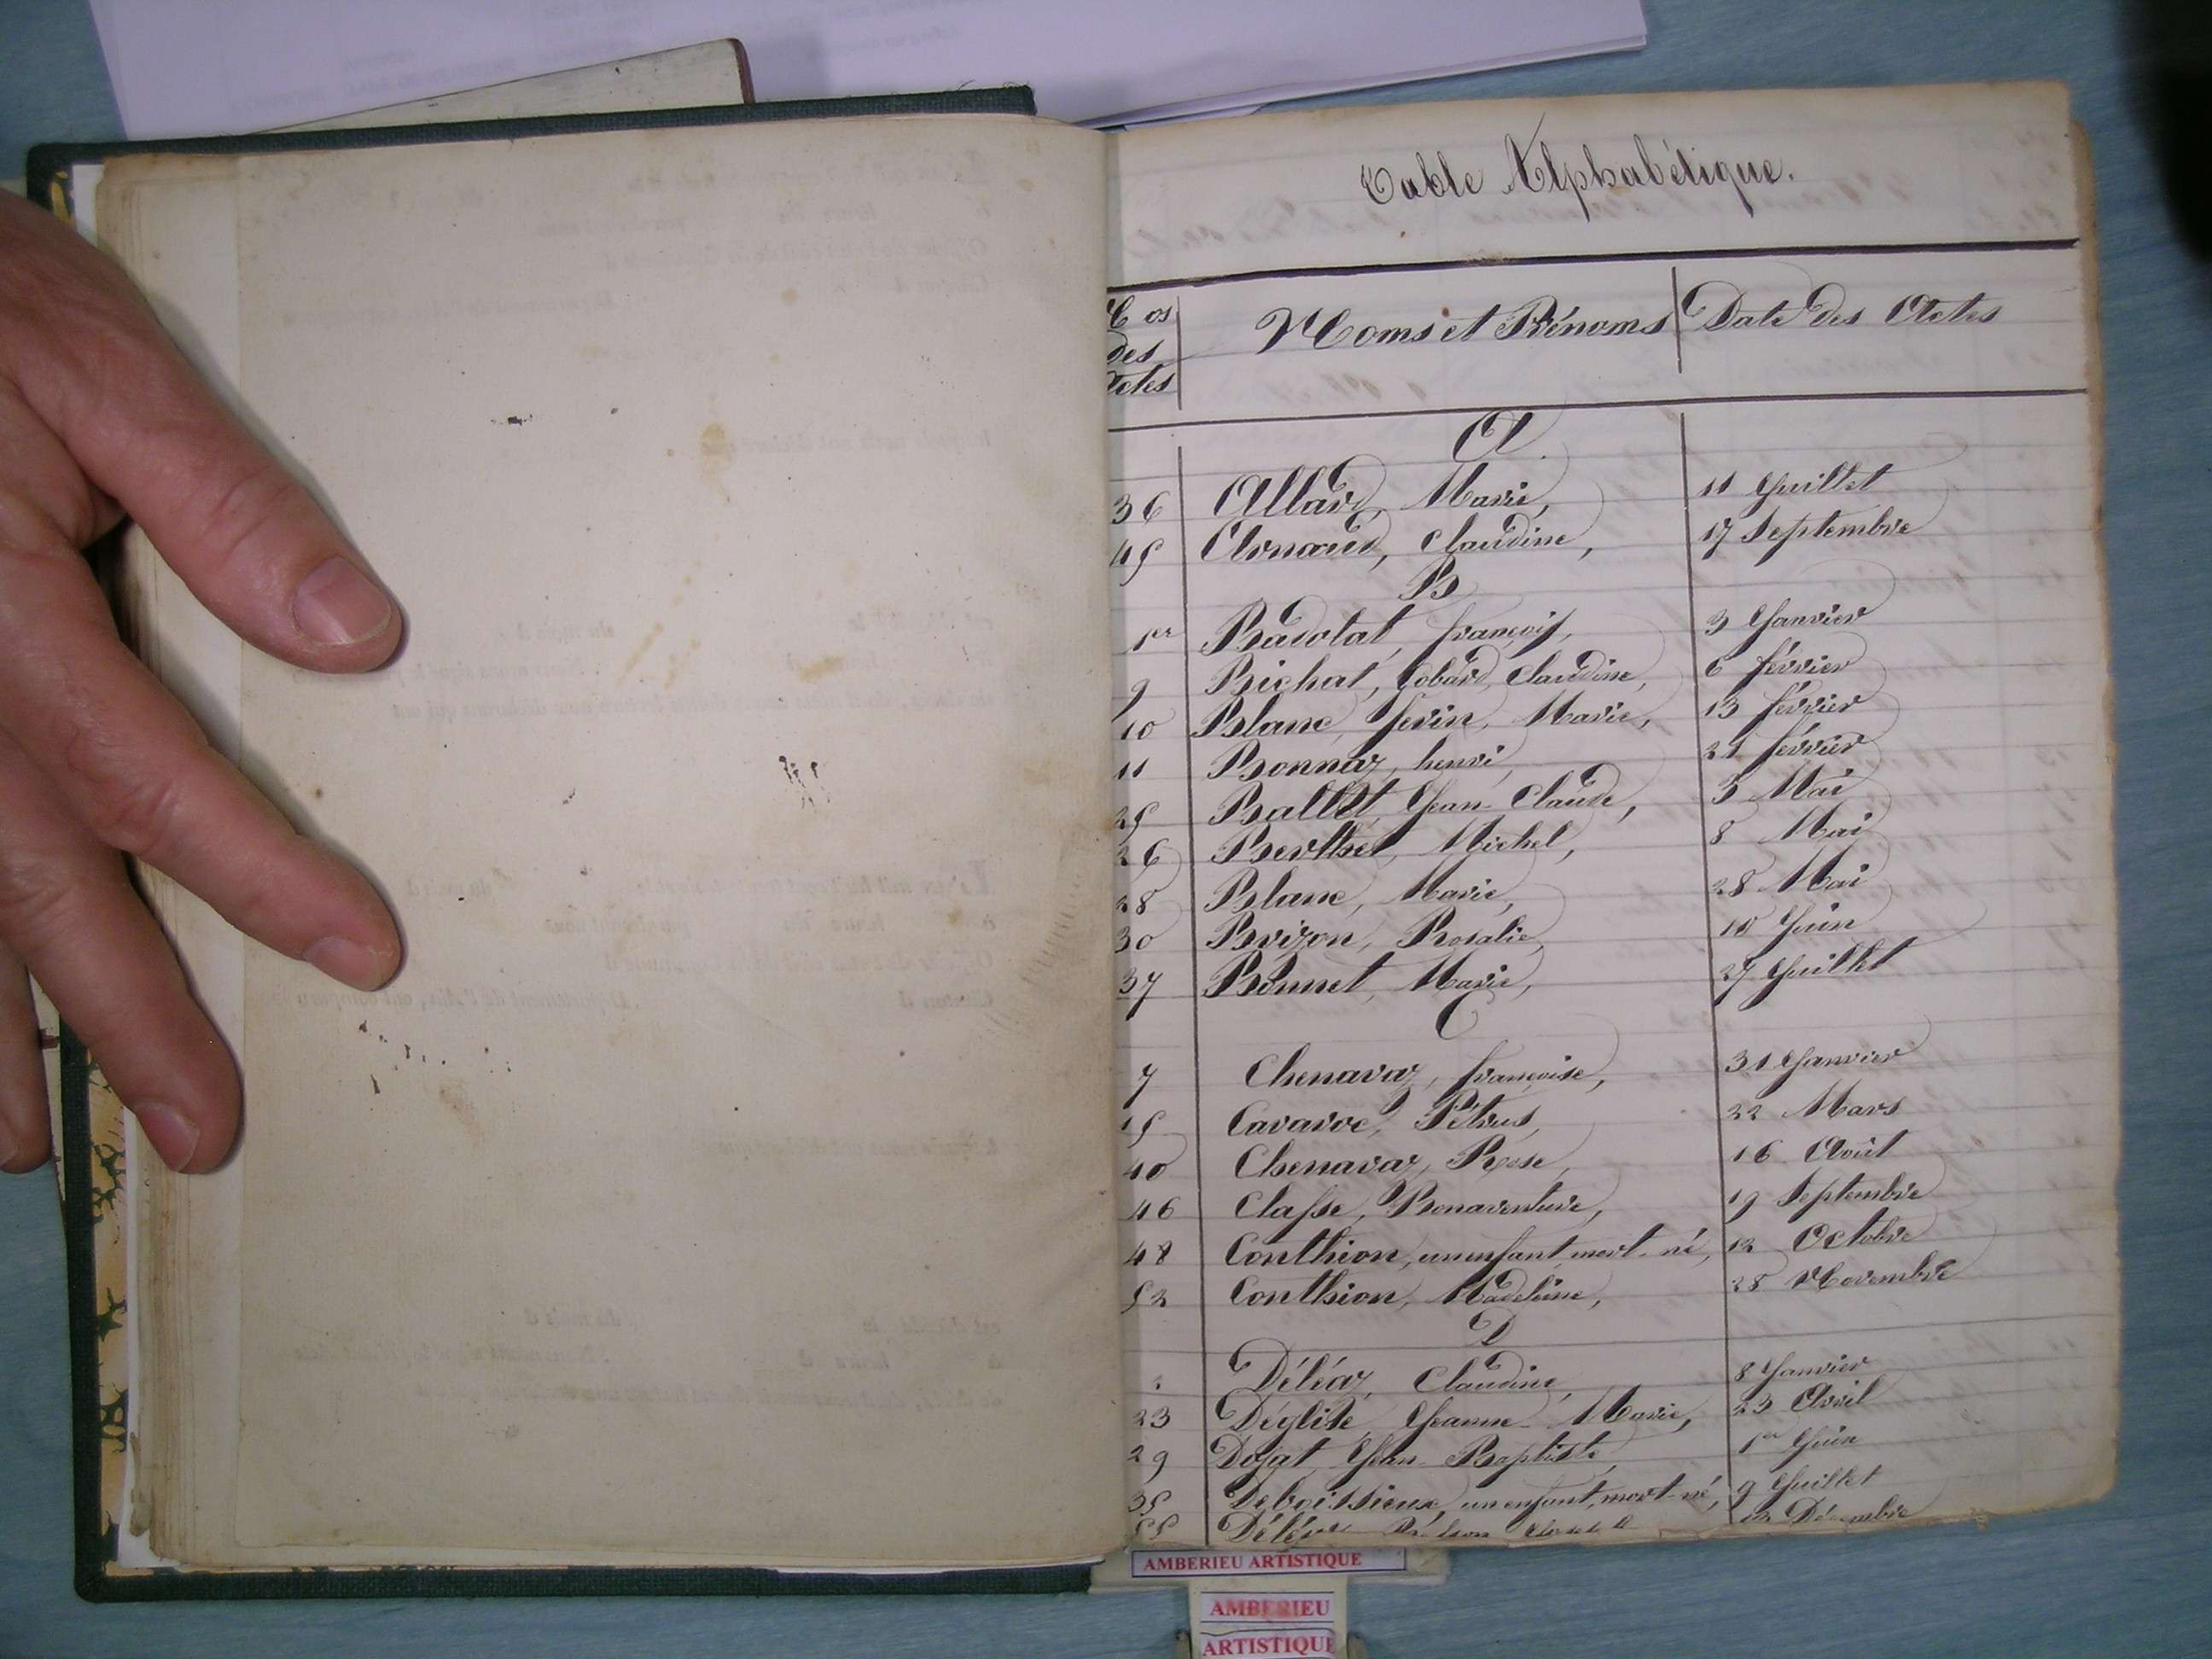 Table Alphabétique.
Nos
des
Actes
Noms et Prénoms
Date des Actes
A.
36 Allard, Marie, 11 Juillet
45 Arnaud, Claudine, 17 Septembre
B
1er Badolat, françois, 3 Janvier
9 Bichat, Gobard, Claudine, 6 février
10 Blanc, Jevin, Marie, 13 février
11 Bonnaz, henri, 21 février
25 Ballet, Jean-Claude, 3 Mai
26 Berthet, Michel, 8 Mai
28 Blanc, Marie, 28 Mai
30 Brizon, Rosalie, 10 Juin
37 Bonnet, Marie, 27 Juillet
C
7 Chenavaz, françoise, 31 Janvier
15 Cavaroc, Pétrus, 22 Mars
40 Chenavaz, Rose, 16 Août
46 Classe, Bonaventure, 19 Septembre
48 Conthion, un enfant mort-né, 12 Octobre
52 Conthion, Madeleine, 28 Novembre
D
Déléaz, Claudine, 8 Janvier
23 Déglise, Jeanne-Marie, 23 Avril
29 Dojat, Jean-Baptiste, 1er Juin
35 Deboissieux, un enfant, mort-né, 9 Juillet
55 Décembre
AMBERIEU ARTISTIQUE
AMBERIEU
ARTISTIQUE